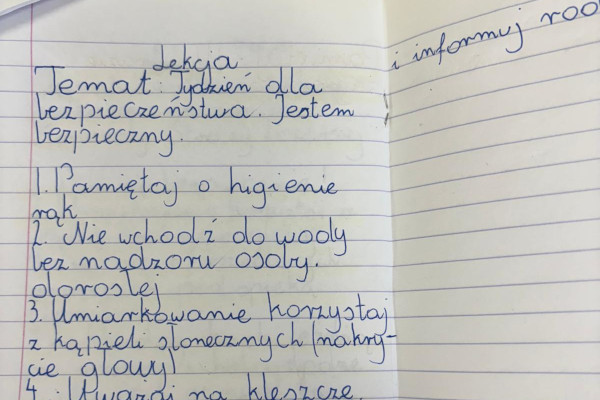 Lekcja
Temat: Tydzień dla
bezpieczeństwa. Jestem
bezpieczny.
1. Pamiętaj o higienie
rąk
2. Nie wchodź do wody
bez nadzoru osoby.
dorosłej
3. Umiarkowanie korzystaj
z kąpieli słonecznych (nakry-
cie głowy)
4. Uważaj na kleszcze.
i informuj